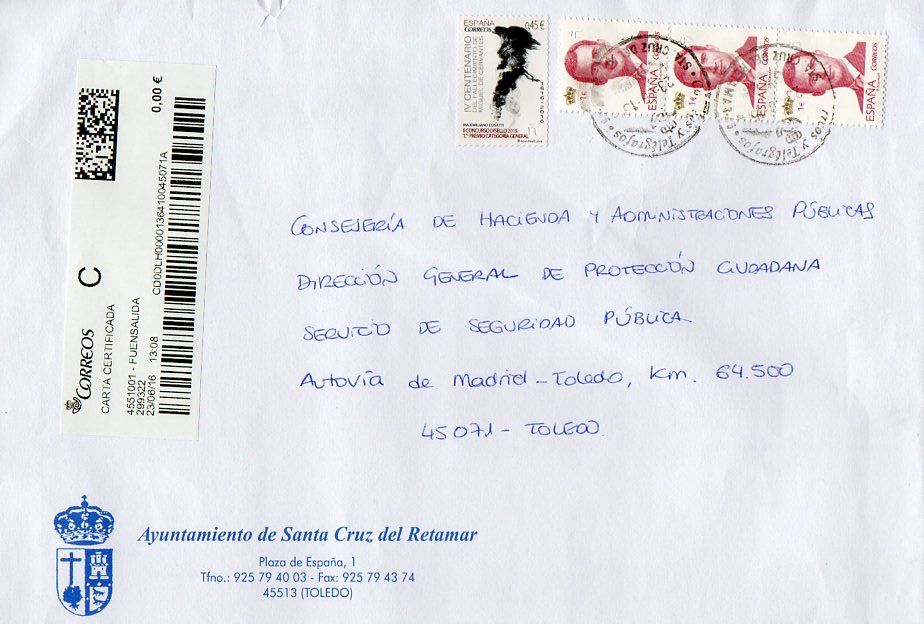 ESPAÑA
CORREOS
0,45€
IV CENTENARIO
DEL FALLECIMIENTO DE
MIGUEL DE CERVANTES
MAXIMILIANO COSATTI
II CONCURSO DISELLO 2015
1.er PREMIO CATEGORÍA GENERAL
ESPAÑA
ESPAÑA
CORREOS
ESPAÑA
CORREOS
STA CRUZ D
y Telégrafos
STA CRUZ
y Telégrafos
0.00 €
CD0DLH0000136410045071A
C
CORREOS
CARTA CERTIFICADA
4551001 - FUENSALIDA
299322
23/06/16 13:08
CONSEJERÍA DE HACIENDA Y ADMINISTRACIONES PÚBLICAS
DIRECCIÓN GENERAL DE PROTECCIÓN CIUDADANA
SERVICIO DE SEGURIDAD PÚBLICA
Autovía de Madrid-Toledo, Km. 64.500
45071- TOLEDO
Ayuntamiento de Santa Cruz del Retamar
Plaza de España, 1
Tfno.: 925 79 40 03 - Fax: 925 79 43 74
45513 (TOLEDO)